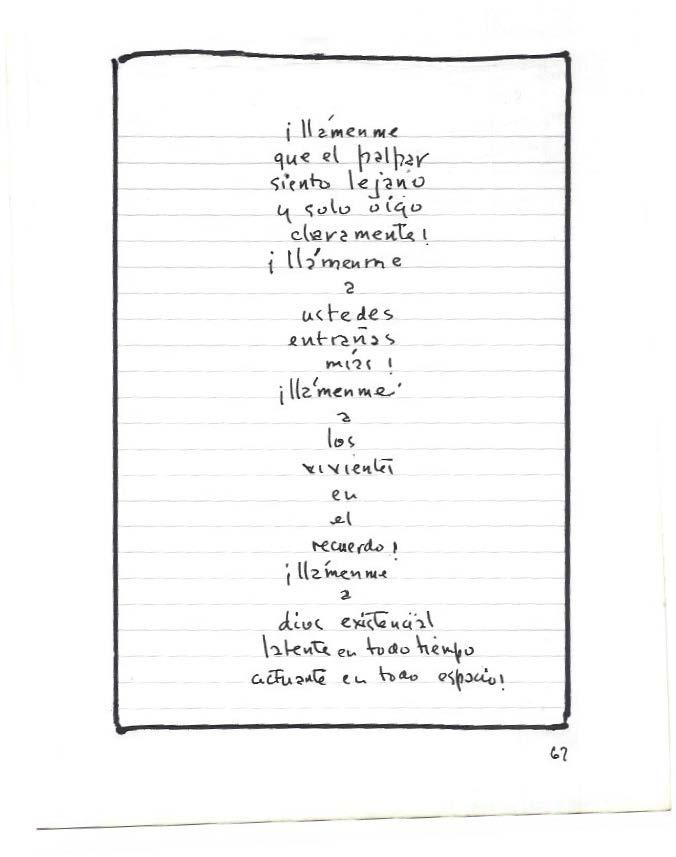 ¡llámenme
que el palpar
siento lejano
y solo oigo
claramente!
¡llámenme
a
ustedes
entrañas
mías!
¡llámenme
a
los
vivientes
en
el
recuerdo!
¡llámenme
a
dios existencial
latente en todo tiempo
actuante en todo espacio!
67